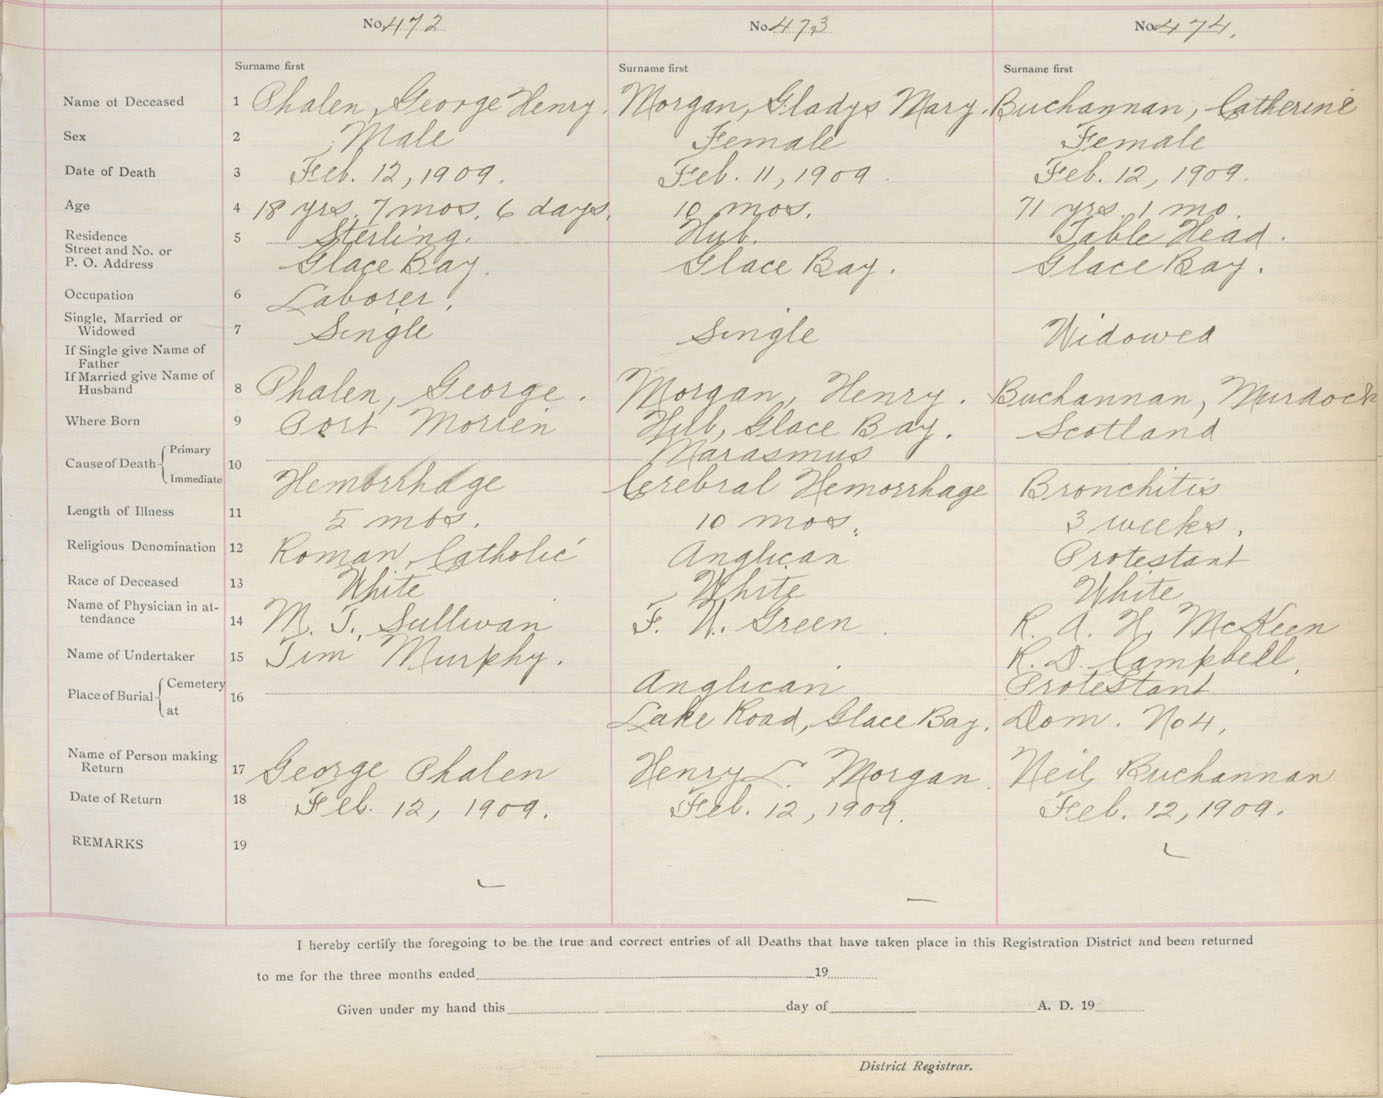 No. 472 No. 473 No. 474.
Surname first Surname first Surname first
Name of Deceased 1 Phalen, George Henry. Morgan, Gladys Mary. Buchannan, Catherine
Sex 2 Male Female Female
Date of Death 3 Feb. 12, 1909. Feb. 11, 1909 Feb. 12, 1909.
Age 4 18 yrs. 7 mos. 6 days. 10 mos. 71 yrs. 1 mo.
Residence 5 Sterling. Hub. Table Head.
Street and No. or
P. O. Address Glace Bay. Glace Bay. Glace Bay.
Occupation 6 Laborer.
Single, Married or
Widowed 7 Single Single Widowed
If Single give Name of
Father
If Married give Name of
Husband 8 Phalen, George. Morgan, Henry. Buchannan, Murdock
Where Born 9 Port Morien Hub, Glace Bay. Scotland
Cause of Death Primary 10 Marasmus
Immediate Hemorrhage Cerebral Hemorrhage Bronchitis
Length of Illness 11 5 mos. 10 mos. 3 weeks.
Religious Denomination 12 Roman Catholic Anglican Protestant
Race of Deceased 13 White White White
Name of Physician in at-
tendance 14 M. T. Sullivan F. W. Green R. A. H. McKeen
Name of Undertaker 15 Tim Murphy. R. D. Campbell.
Place of Burial Cemetery 16 Anglican Protestant
at Lake Road, Glace Bay. Dom. No 4.
Name of Person making
Return 17 George Phalen Henry L. Morgan. Neil Buchannan
Date of Return 18 Feb. 12, 1909. Feb. 12, 1909. Feb. 12, 1909.
REMARKS 19
I hereby certify the foregoing to be the true and correct entries of all Deaths that have taken place in this Registration District and been returned
to me for the three months ended 19
Given under my hand this day of A. D. 19
District Registrar.